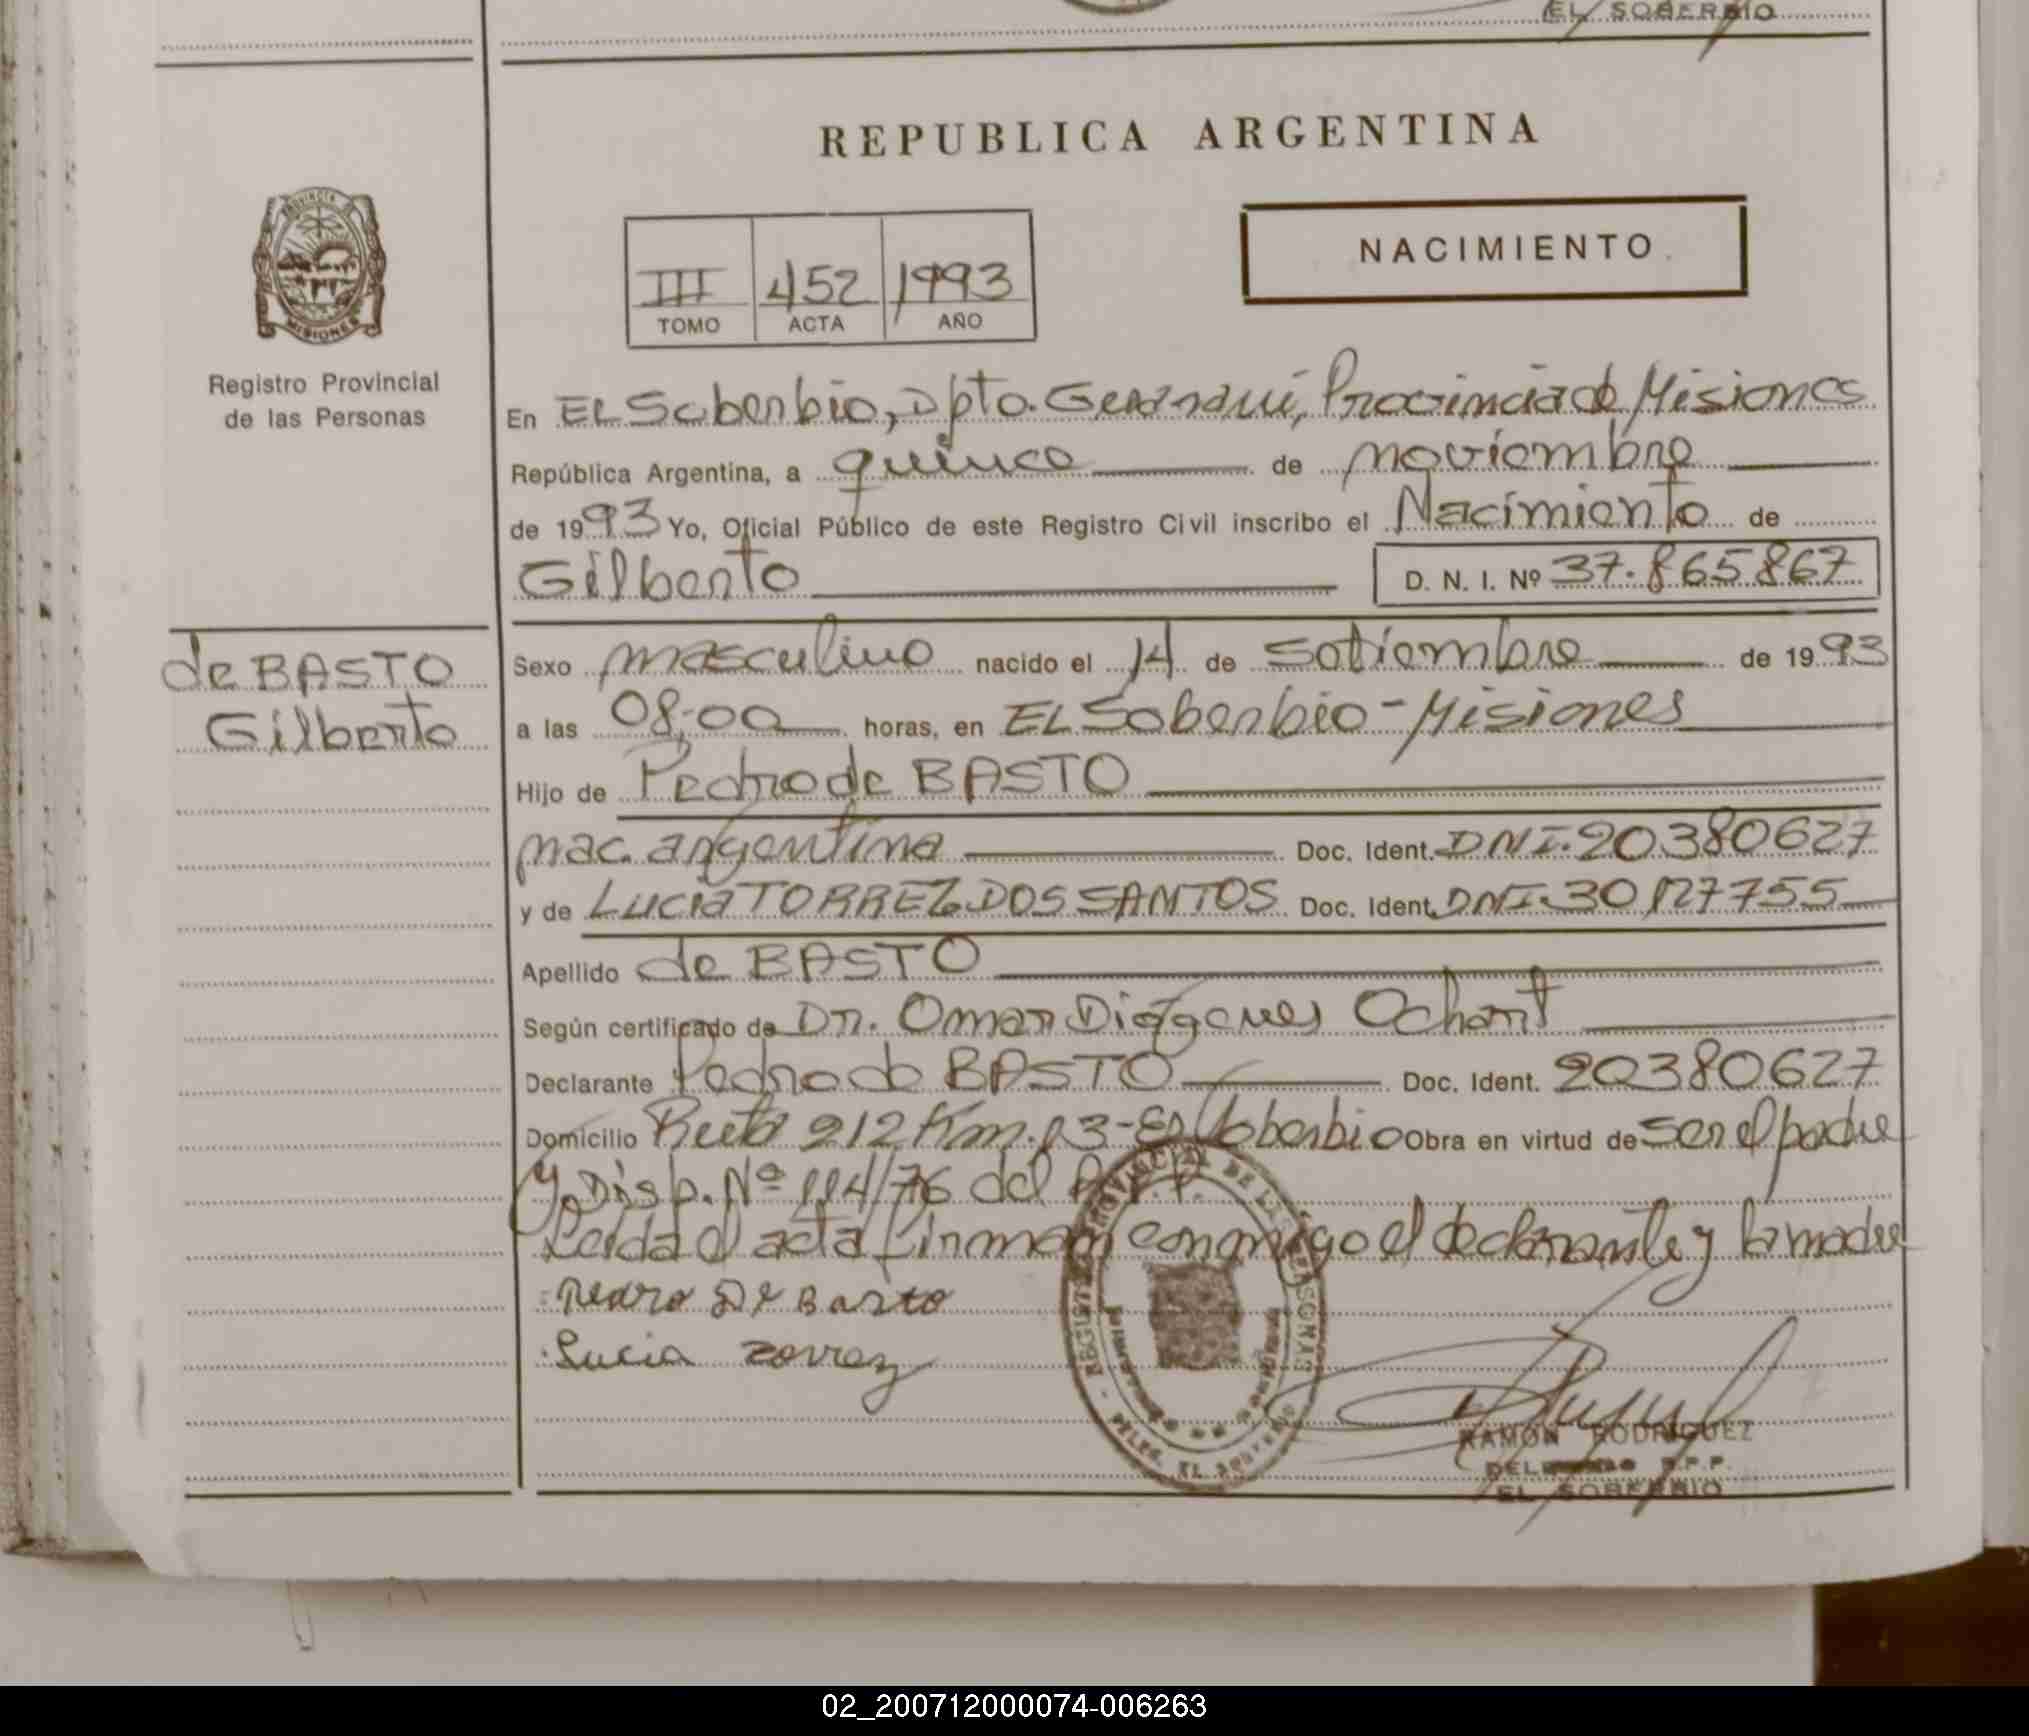 EL SOBERBIO
REPUBLICA ARGENTINA
NACIMIENTO
III 452 1993
TOMO ACTA AÑO
PROVINCIA
MISIONES
Registro Provincial
de las Personas
En El Soberbio, Dpto. Guaraní, Provincia de Misiones
República Argentina, a quince de noviembre
de 1993 Yo, Oficial Público de este Registro Civil inscribo el Nacimiento de
Gilberto D. N. I. Nº 37.865867
de BASTO
Gilberto
Sexo masculino nacido el 14 de setiembre de 1993
a las 08,00 horas, en EL Soberbio - Misiones
Hijo de Pedro de BASTO
nac. argentina Doc. Ident. DNI. 20380627
y de Lucia TORREZ DOS SANTOS Doc. Ident. DNI. 30127755
Apellido de BASTO
Según certificado de Dr. Omar Diógenes Ochant
Declarante Pedro de BASTO Doc. Ident. 20380627
Domicilio Ruta 212 Km. 13 - El Soberbio Obra en virtud de ser el padre
y Disp. Nº 114/76 del R.P.P.
Leida el acta firman conmigo el declarante y la madre
Pedro De Basto
Lucia Torrez
REGISTRO PROVINCIAL DE LAS PERSONAS
DELEG. EL SOBERBIO
RAMON RODRIGUEZ
DELEGADO R.P.P.
EL SOBERBIO
02_200712000074-006263